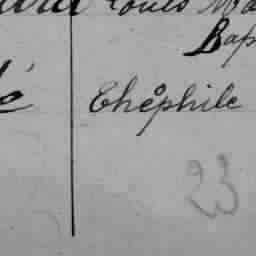 Louis Ma
Bap
é Théphile
23